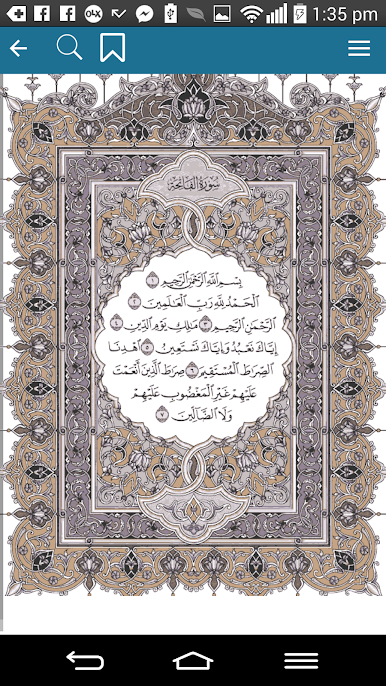 1:35 pm
سورة الفاتحة
بِسْمِ ٱللَّهِ ٱلرَّحْمَٰنِ ٱلرَّحِيمِ ١
ٱلْحَمْدُ لِلَّهِ رَبِّ ٱلْعَٰلَمِينَ ٢
ٱلرَّحْمَٰنِ ٱلرَّحِيمِ ٣ مَٰلِكِ يَوْمِ ٱلدِّينِ ٤
إِيَّاكَ نَعْبُدُ وَإِيَّاكَ نَسْتَعِينُ ٥ ٱهْدِنَا
ٱلصِّرَٰطَ ٱلْمُسْتَقِيمَ ٦ صِرَٰطَ ٱلَّذِينَ أَنْعَمْتَ
عَلَيْهِمْ غَيْرِ ٱلْمَغْضُوبِ عَلَيْهِمْ
وَلَا ٱلضَّآلِّينَ ٧